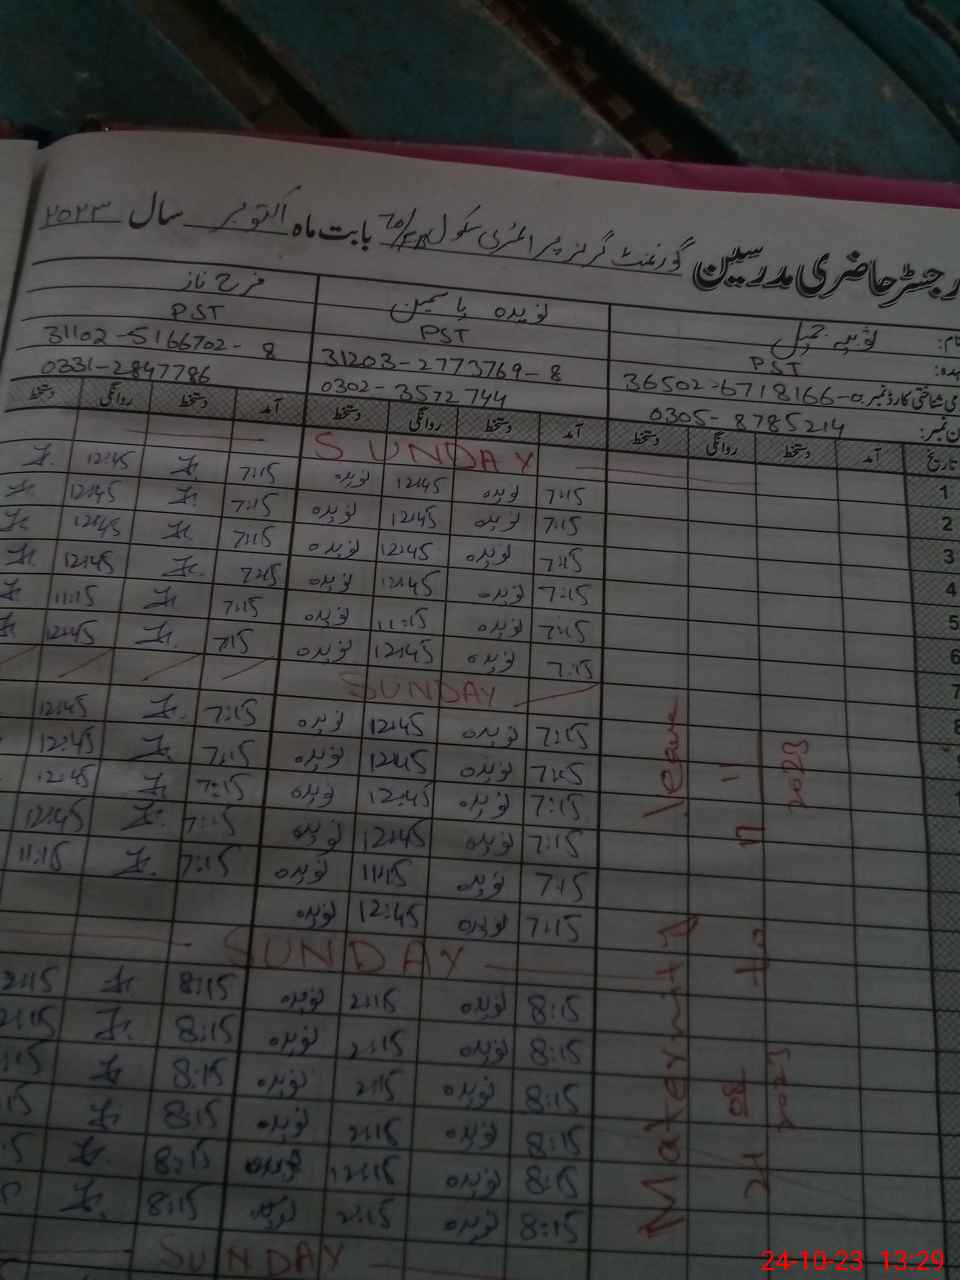 رجسٹر حاضری مدرسین گورنمنٹ گرلز پرائمری سکول بابت ماہ اکتوبر سال ۲۰۲۳
نام: نویدہ یاسمین فرح ناز
PST PST PST
شناختی کارڈ نمبر 36502-6718166-0 31203-2773769-8 31102-5166702-8
0305-8785214 0302-3572744 0331-2847786
تاریخ آمد دستخط روانگی دستخط آمد دستخط روانگی دستخط آمد دستخط روانگی دستخط
1 SUNDAY
2 7:15 نویدہ 12:45 نویدہ 7:15 12:45
3 7:15 نویدہ 12:45 نویدہ 7:15 12:45
4 7:15 نویدہ 12:45 نویدہ 7:15 12:45
5 7:15 نویدہ 12:45 نویدہ 7:15 12:45
6 7:15 نویدہ 11:15 نویدہ 7:15 11:15
7 7:15 نویدہ 12:45 نویدہ 7:15 12:45
8 SUNDAY
7:15 نویدہ 12:45 نویدہ 7:15 12:45
7:15 نویدہ 12:45 نویدہ 7:15 12:45
7:15 نویدہ 12:45 نویدہ 7:15 12:45
7:15 نویدہ 12:45 نویدہ 7:15 12:45
7:15 نویدہ 11:15 نویدہ 7:15 11:15
7:15 نویدہ 12:45 نویدہ
SUNDAY
8:15 نویدہ 2:15 نویدہ 8:15 2:15
8:15 نویدہ 2:15 نویدہ 8:15 2:15
8:15 نویدہ 2:15 نویدہ 8:15
8:15 نویدہ 2:15 نویدہ 8:15
8:15 نویدہ 12:15 نویدہ 8:15
8:15 نویدہ 2:15 نویدہ 8:15
SUNDAY
Maternity leave
to 11
2023
2023
24-10-23 13:29